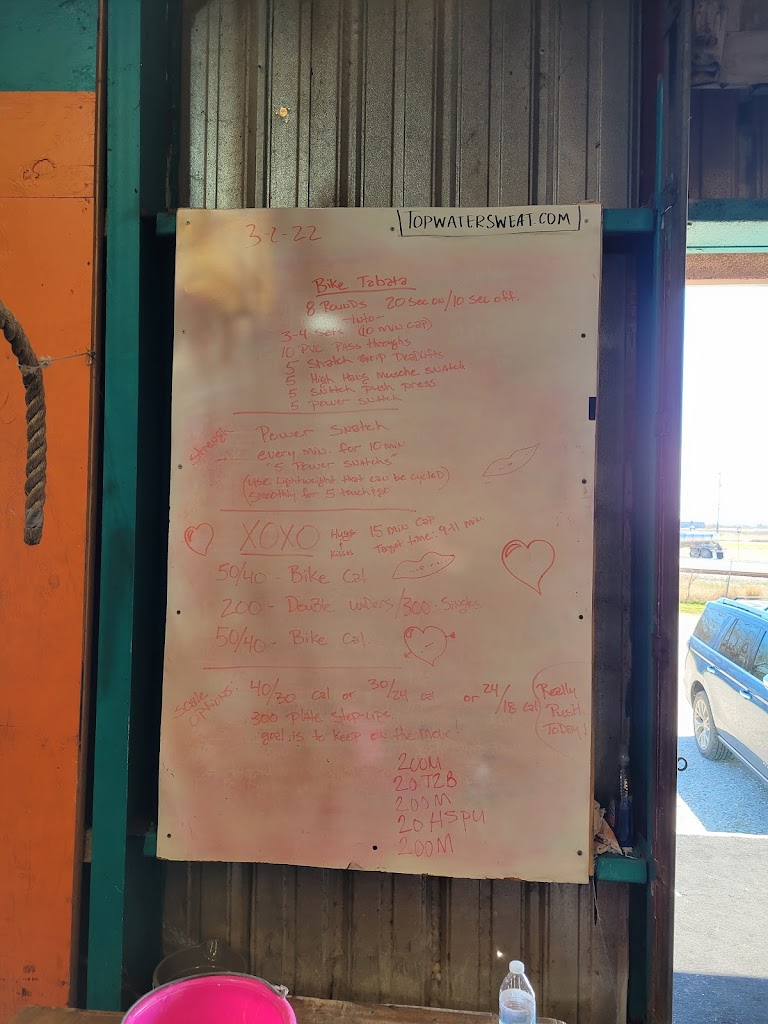 TOPWATERSWEAT.COM
3-2-22
Bike Tabata
8 Rounds 20 sec on/10 sec off.
-into-
3-4 Sets (10 min cap)
10 PVC Pass throughs
5 Snatch Grip Deadlifts
5 High Hang Muscle Snatch
5 Snatch Push press
5 power snatch
Strength Power Snatch
every min. for 10 min
"5 Power snatchs"
(use Lightweight that can be cycled)
smoothly for 5 touch+go
XOXO Hugs & Kisses 15 min Cap
Target time: 9-11 min
50/40 - Bike Cal
200 - Double unders/300-Singles
50/40 - Bike Cal.
Scale Options: 40/30 cal or 30/24 cal or 24/18 cal
300 plate step-ups
goal is to keep on the move!
Really
Push
Today!
200M
20 T2B
200M
20 HSPU
200M